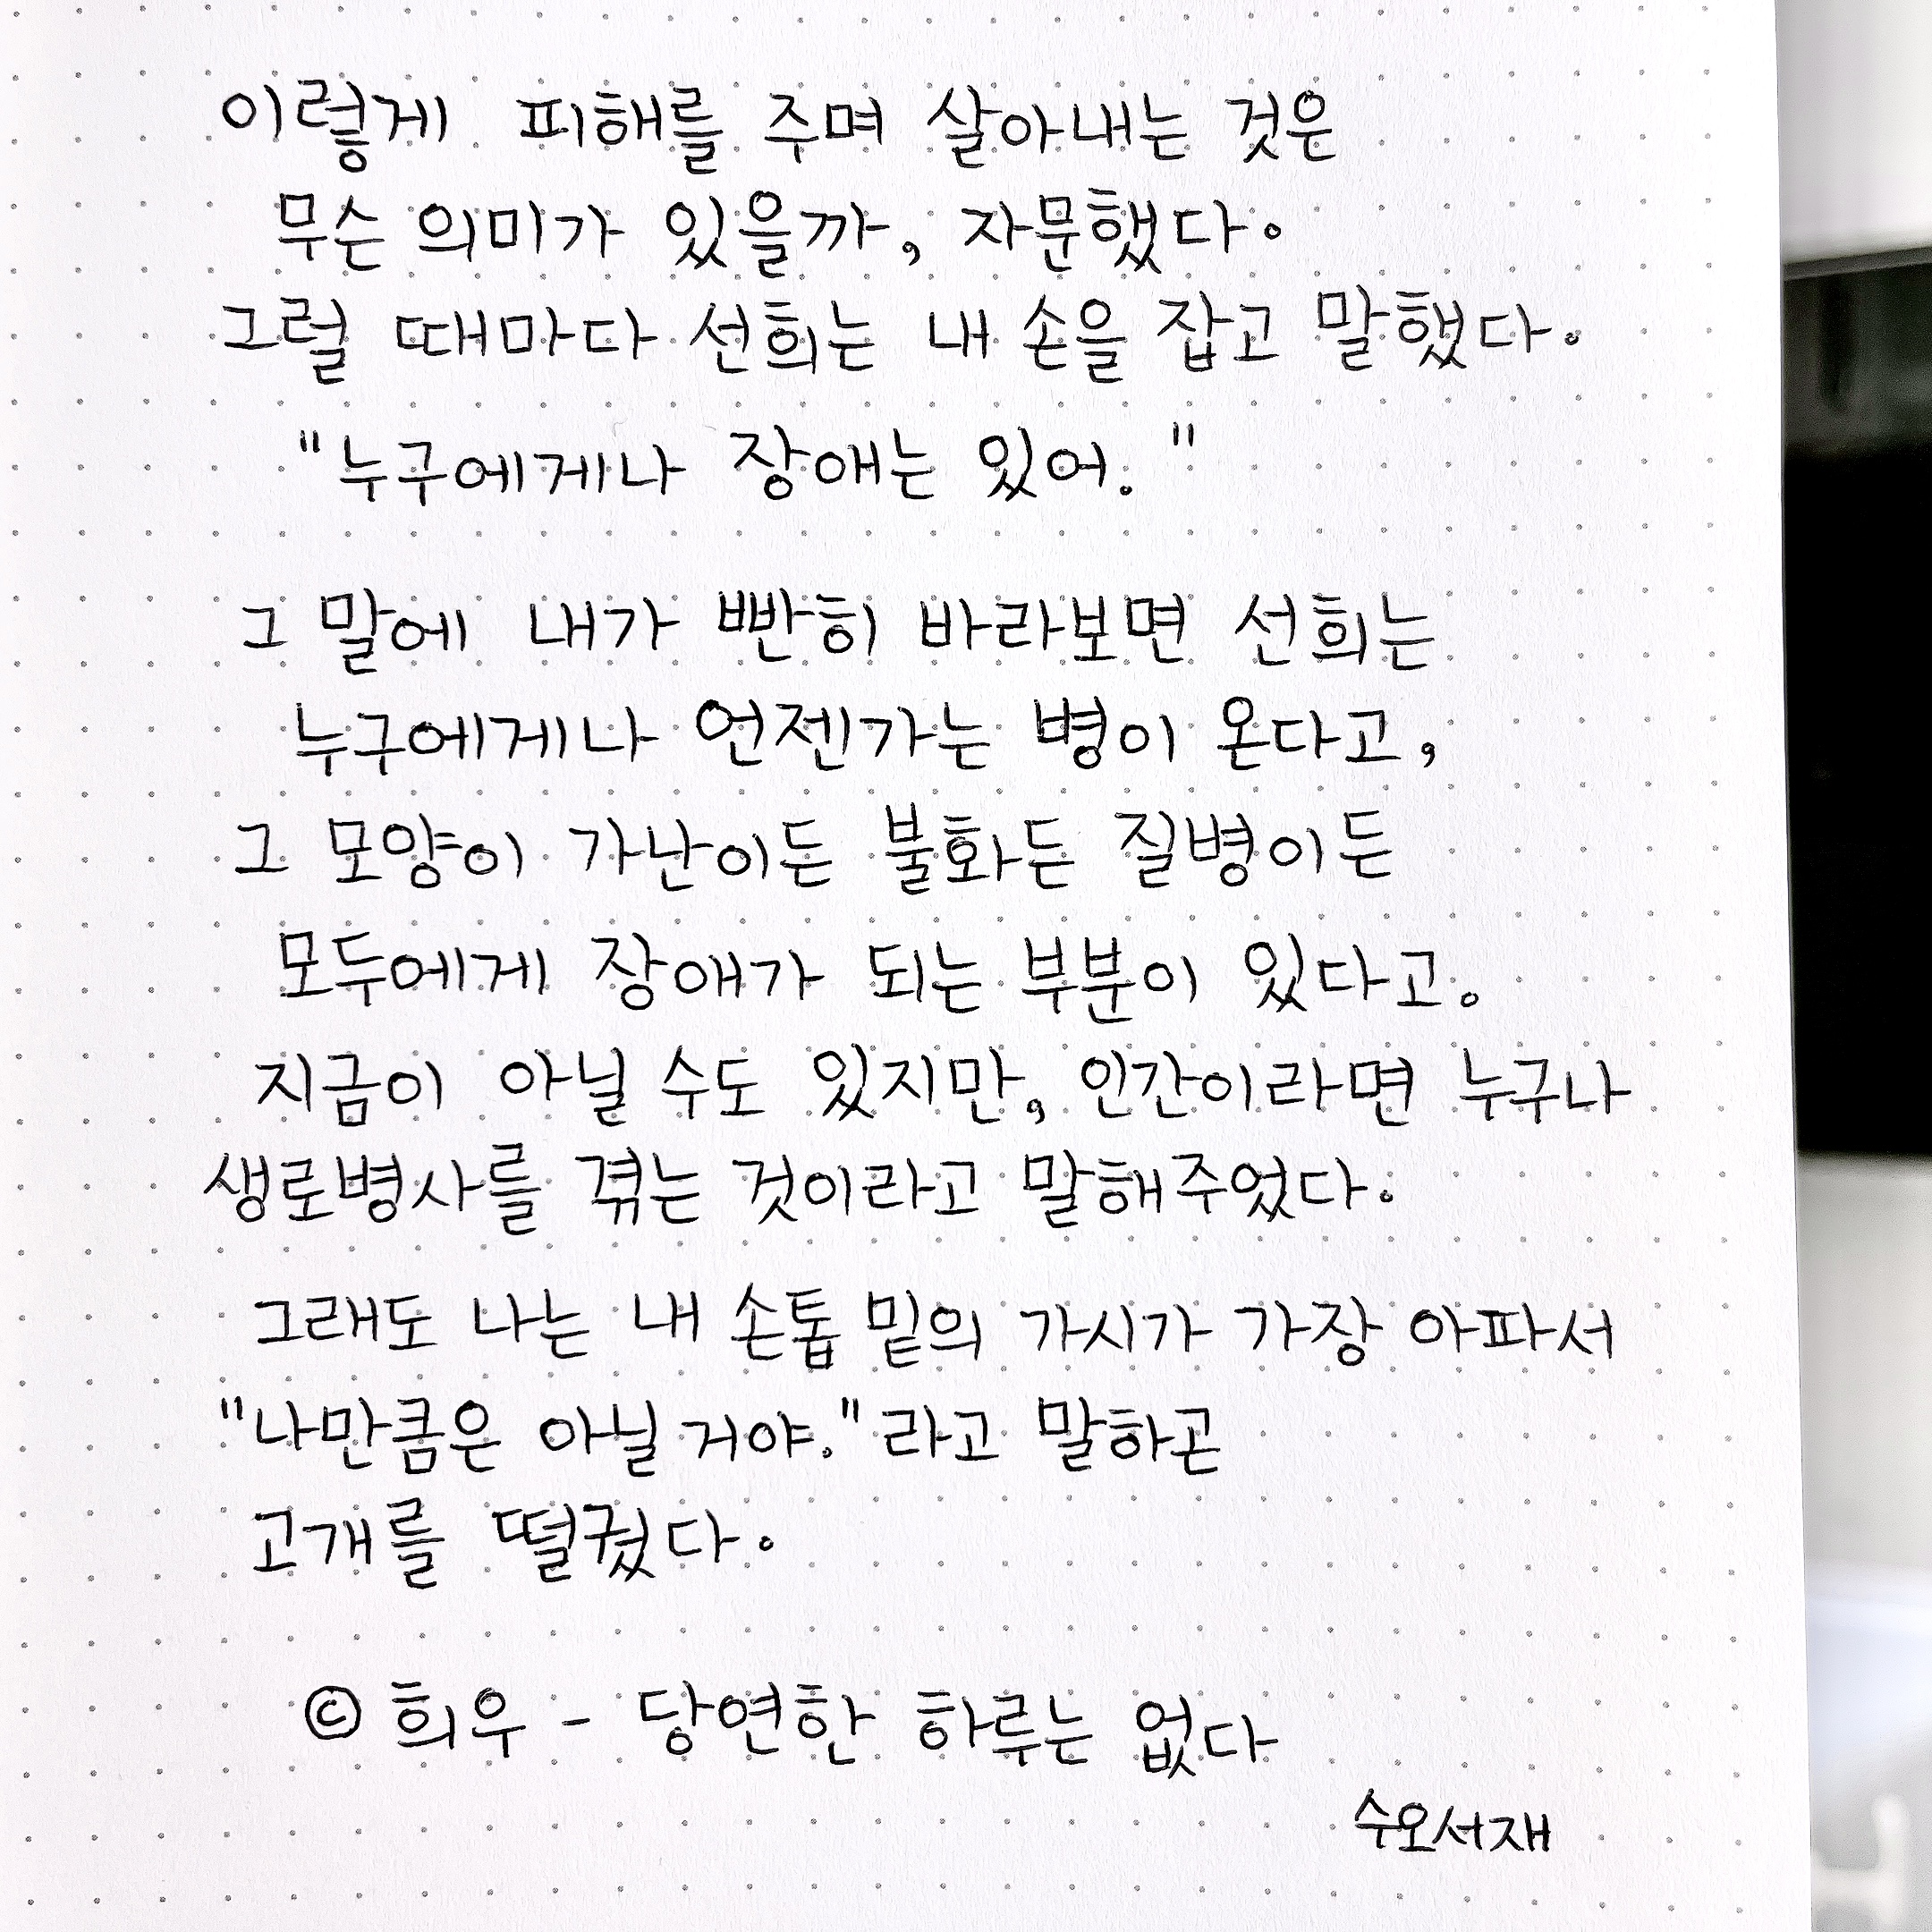 이렇게 피해를 주며 살아내는 것은
무슨 의미가 있을까, 자문했다.
그럴 때마다 선희는 내 손을 잡고 말했다.
"누구에게나 장애는 있어."
그 말에 내가 빤히 바라보면 선희는
누구에게나 언젠가는 병이 온다고,
그 모양이 가난이든 불화든 질병이든
모두에게 장애가 되는 부분이 있다고.
지금이 아닐 수도 있지만, 인간이라면 누구나
생로병사를 겪는 것이라고 말해주었다.
그래도 나는 내 손톱 밑의 가시가 가장 아파서
"나만큼은 아닐 거야."라고 말하곤
고개를 떨궜다.
© 희우 - 당연한 하루는 없다
수오서재